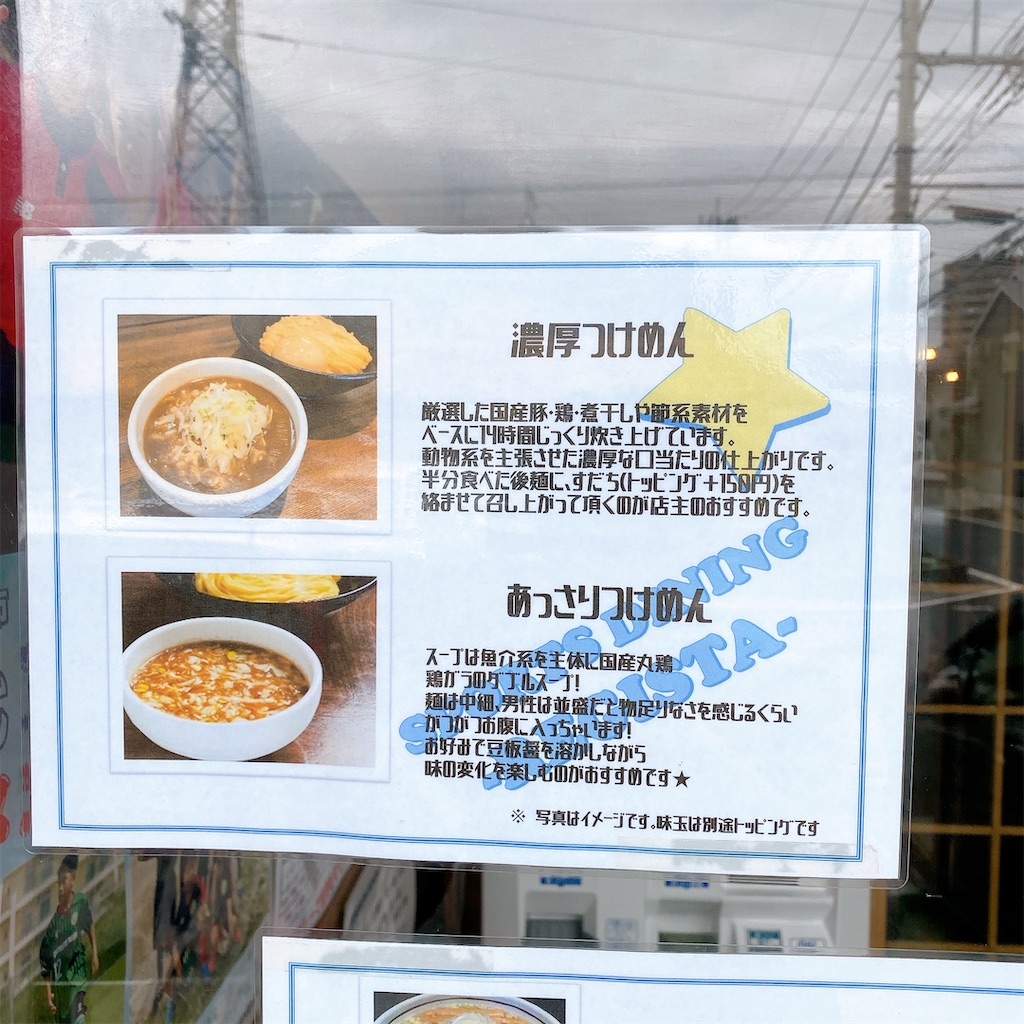 濃厚つけめん
厳選した国産豚・鶏・煮干しや節系素材を
ベースに14時間じっくり炊き上げています。
動物系を主張させた濃厚な口当たりの仕上がりです。
半分食べた後麺に、すだち(トッピング+150円)を
絡ませて召し上がって頂くのが店主のおすすめです。
あっさりつけめん
スープは魚介系を主体に国産丸鶏
鶏ガラのダブルスープ!
麺は中細、男性は並盛だと物足りなさを感じるくらい
がつがつお腹に入っちゃいます!
お好みで豆板醤を溶かしながら
味の変化を楽しむのがおすすめです★
※ 写真はイメージです。味玉は別途トッピングです
DINING